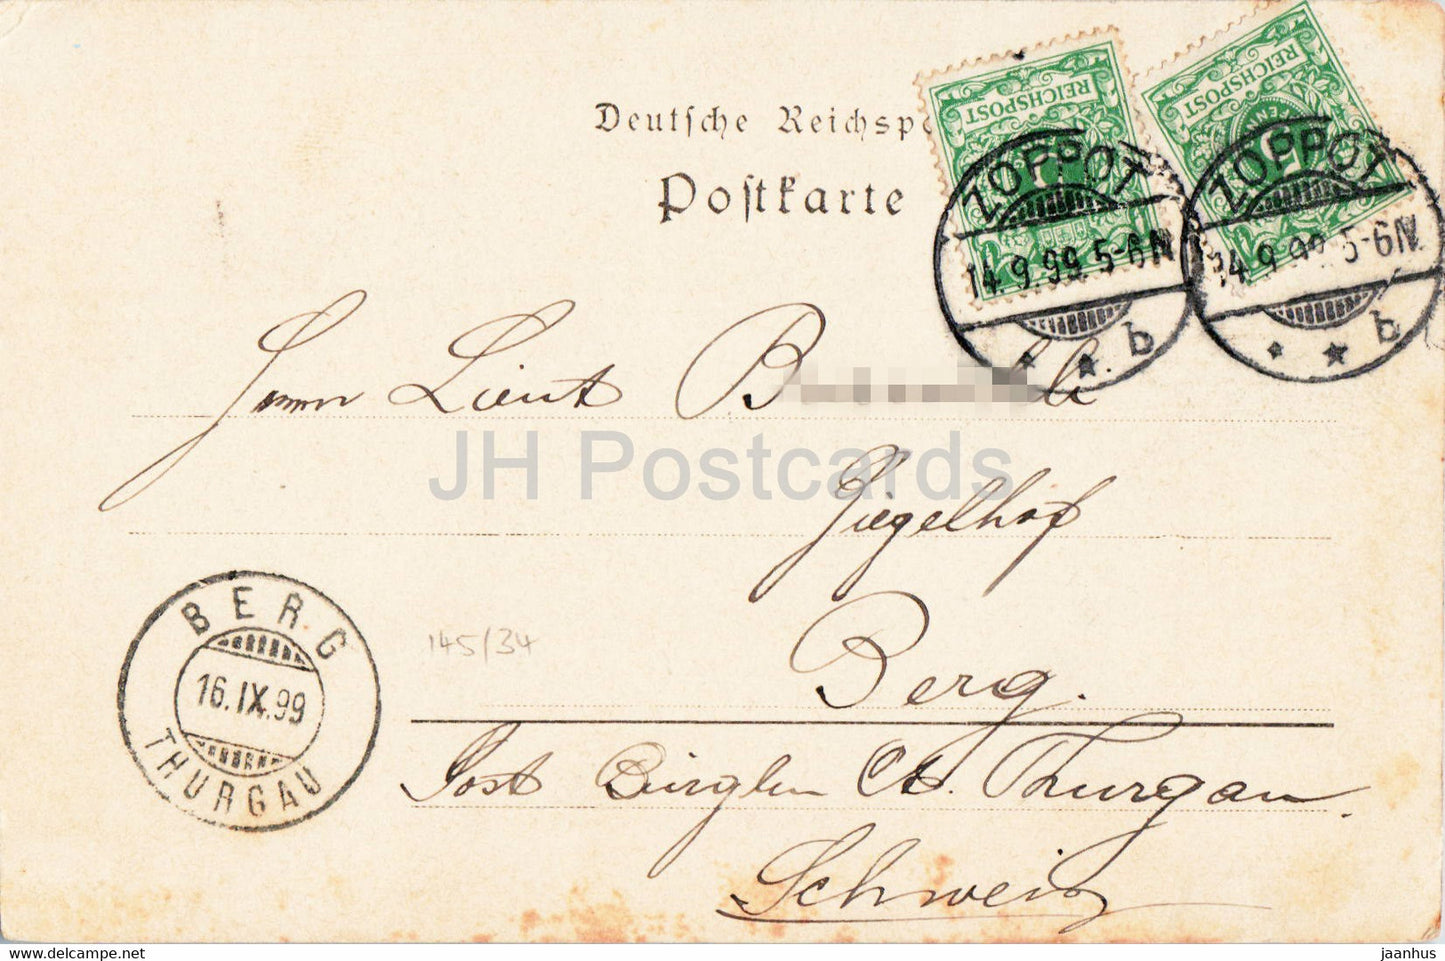 Deutsche Reichsp
Postkarte
REICHSPOST
REICHSPOST
5
ZOPPOT
14.9.99 5-6N
* * b
ZOPPOT
14.9.99 5-6N
* * b
Herrn Lieut B
JH Postcards
Ziegelhof
BERG
16.IX.99
THURGAU
145/34
Berg.
Post Bürglen Ct. Thurgau.
Schweiz
hippostcard.com
jaanhus